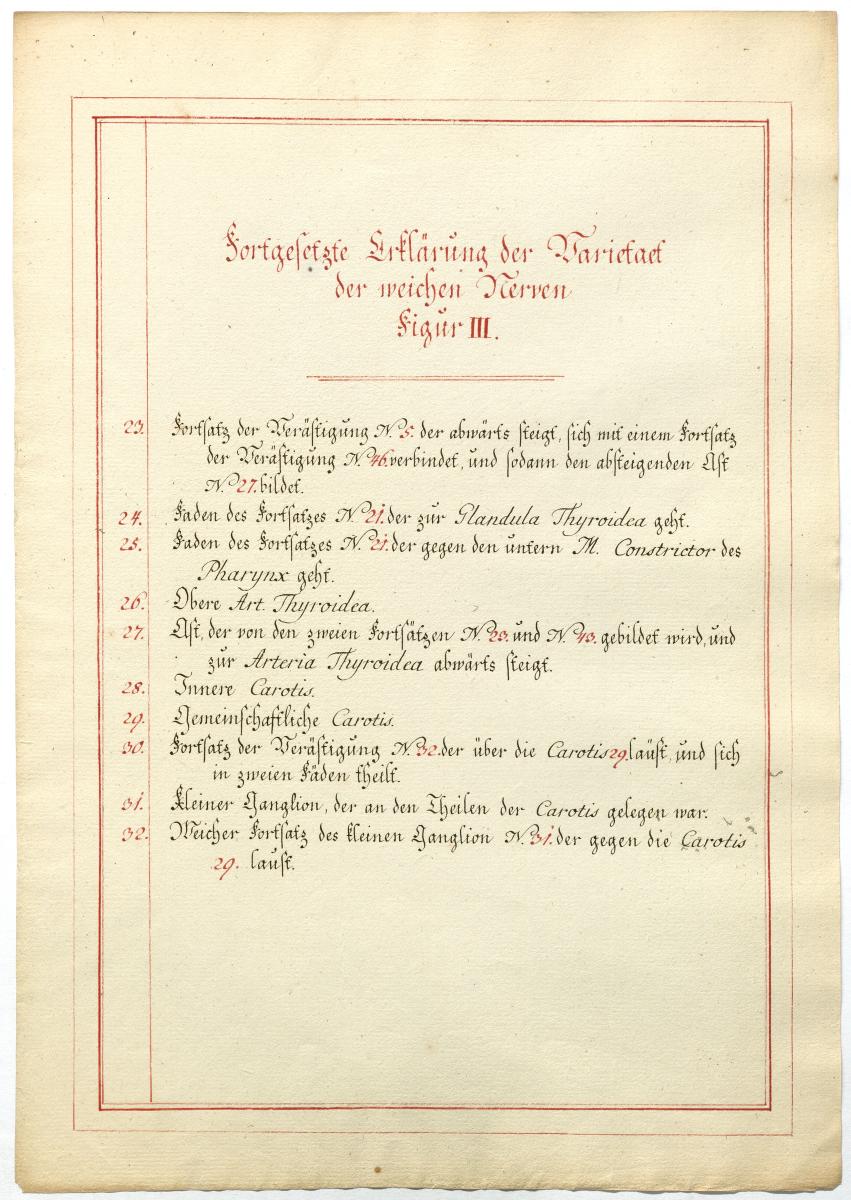 Fortgesetzte Erklärung der Varietaet
der weichen Nerven
Figur III.
23. Fortsatz der Verästigung N. 5. der abwärts steigt, sich mit einem Fortsatz
der Verästigung N. 46. verbindet, und sodann den absteigenden Ast
N. 27. bildet.
24. Faden des Fortsatzes N. 21. der zur Glandula Thyroidea geht.
25. Faden des Fortsatzes N. 21. der gegen den untern M. Constrictor des
Pharynx geht.
26. Obere Art. Thyroidea.
27. Ast, der von den zweien Fortsätzen N. 23. und N. 43. gebildet wird, und
zur Arteria Thyroidea abwärts steigt.
28. Innere Carotis.
29. Gemeinschaftliche Carotis.
30. Fortsatz der Verästigung N. 32. der über die Carotis 29. lauft, und sich
in zweien Fäden theilt.
31. Kleiner Ganglion, der an den Theilen der Carotis gelegen war.
32. Weicher Fortsatz des kleinen Ganglion N. 31. der gegen die Carotis
29. lauft.